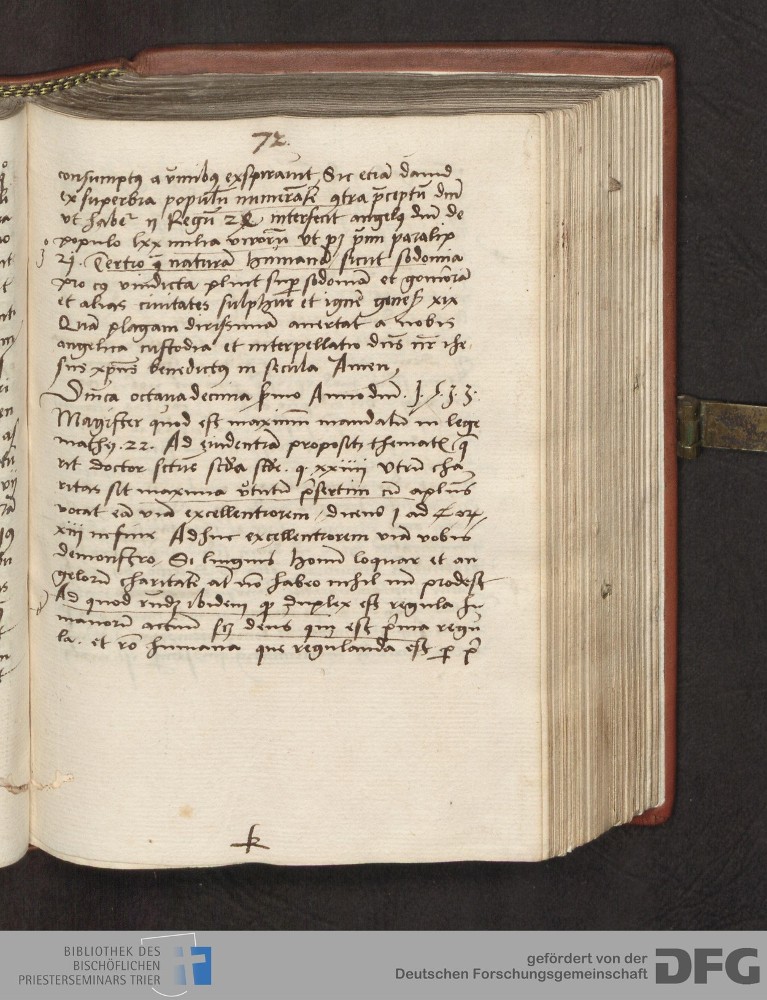 72.
consumptus a vermibus exspiravit, Sic etiā david
ex superbia populū numerās ꝯtra p̄ceptū dn̄i
ut habeᵗ ij Regū 24 interfecit angelꝯ dn̄i de
populo lxx milia virorū ut pꝫ p̄m paralip
21. Tertio q̄ naturam humanā sicut sodomia
pro cꝯ vindicta pluit sup sodomā et gomorā
et alias civitates sulphur et ignē geneš xix
Quā plagam dirissimā avertat a nobis
angelica custodia et interpellatio dn̄s nr̄ ihe
sus xp̄us benedictꝯ in secula Amen,
Dn̄ica octava decima Anno dn̄i. 1. 5. 3. 3.
Magister quod est maximū mandatū in lege
math. 22. Ad evidentiā propositi thematis q̄
rit doctor sctus scd̄a scd̄e. q. xxiiii Utrū cha
ritas sit maxima v̄tutū p̄sertim cū aplūs
vocat eā viā excellentiorem, dicens 1 ad Cor,
xiii in fine Adhuc excellentiorem viā vobis
demonstro, Si linguis hominū loquar et an
gelorū charitatē at nō habeo nihil mī prodest
Ad quod rn̄dꝫ ibidem qꝫ duplex est regula hu
manorū actuū scꝫ deus qui est prima regu
la. et rō humana que regulanda est ꝑ p̄
k
BIBLIOTHEK DES
BISCHÖFLICHEN
PRIESTERSEMINARS TRIER
gefördert von der
Deutschen Forschungsgemeinschaft
DFG